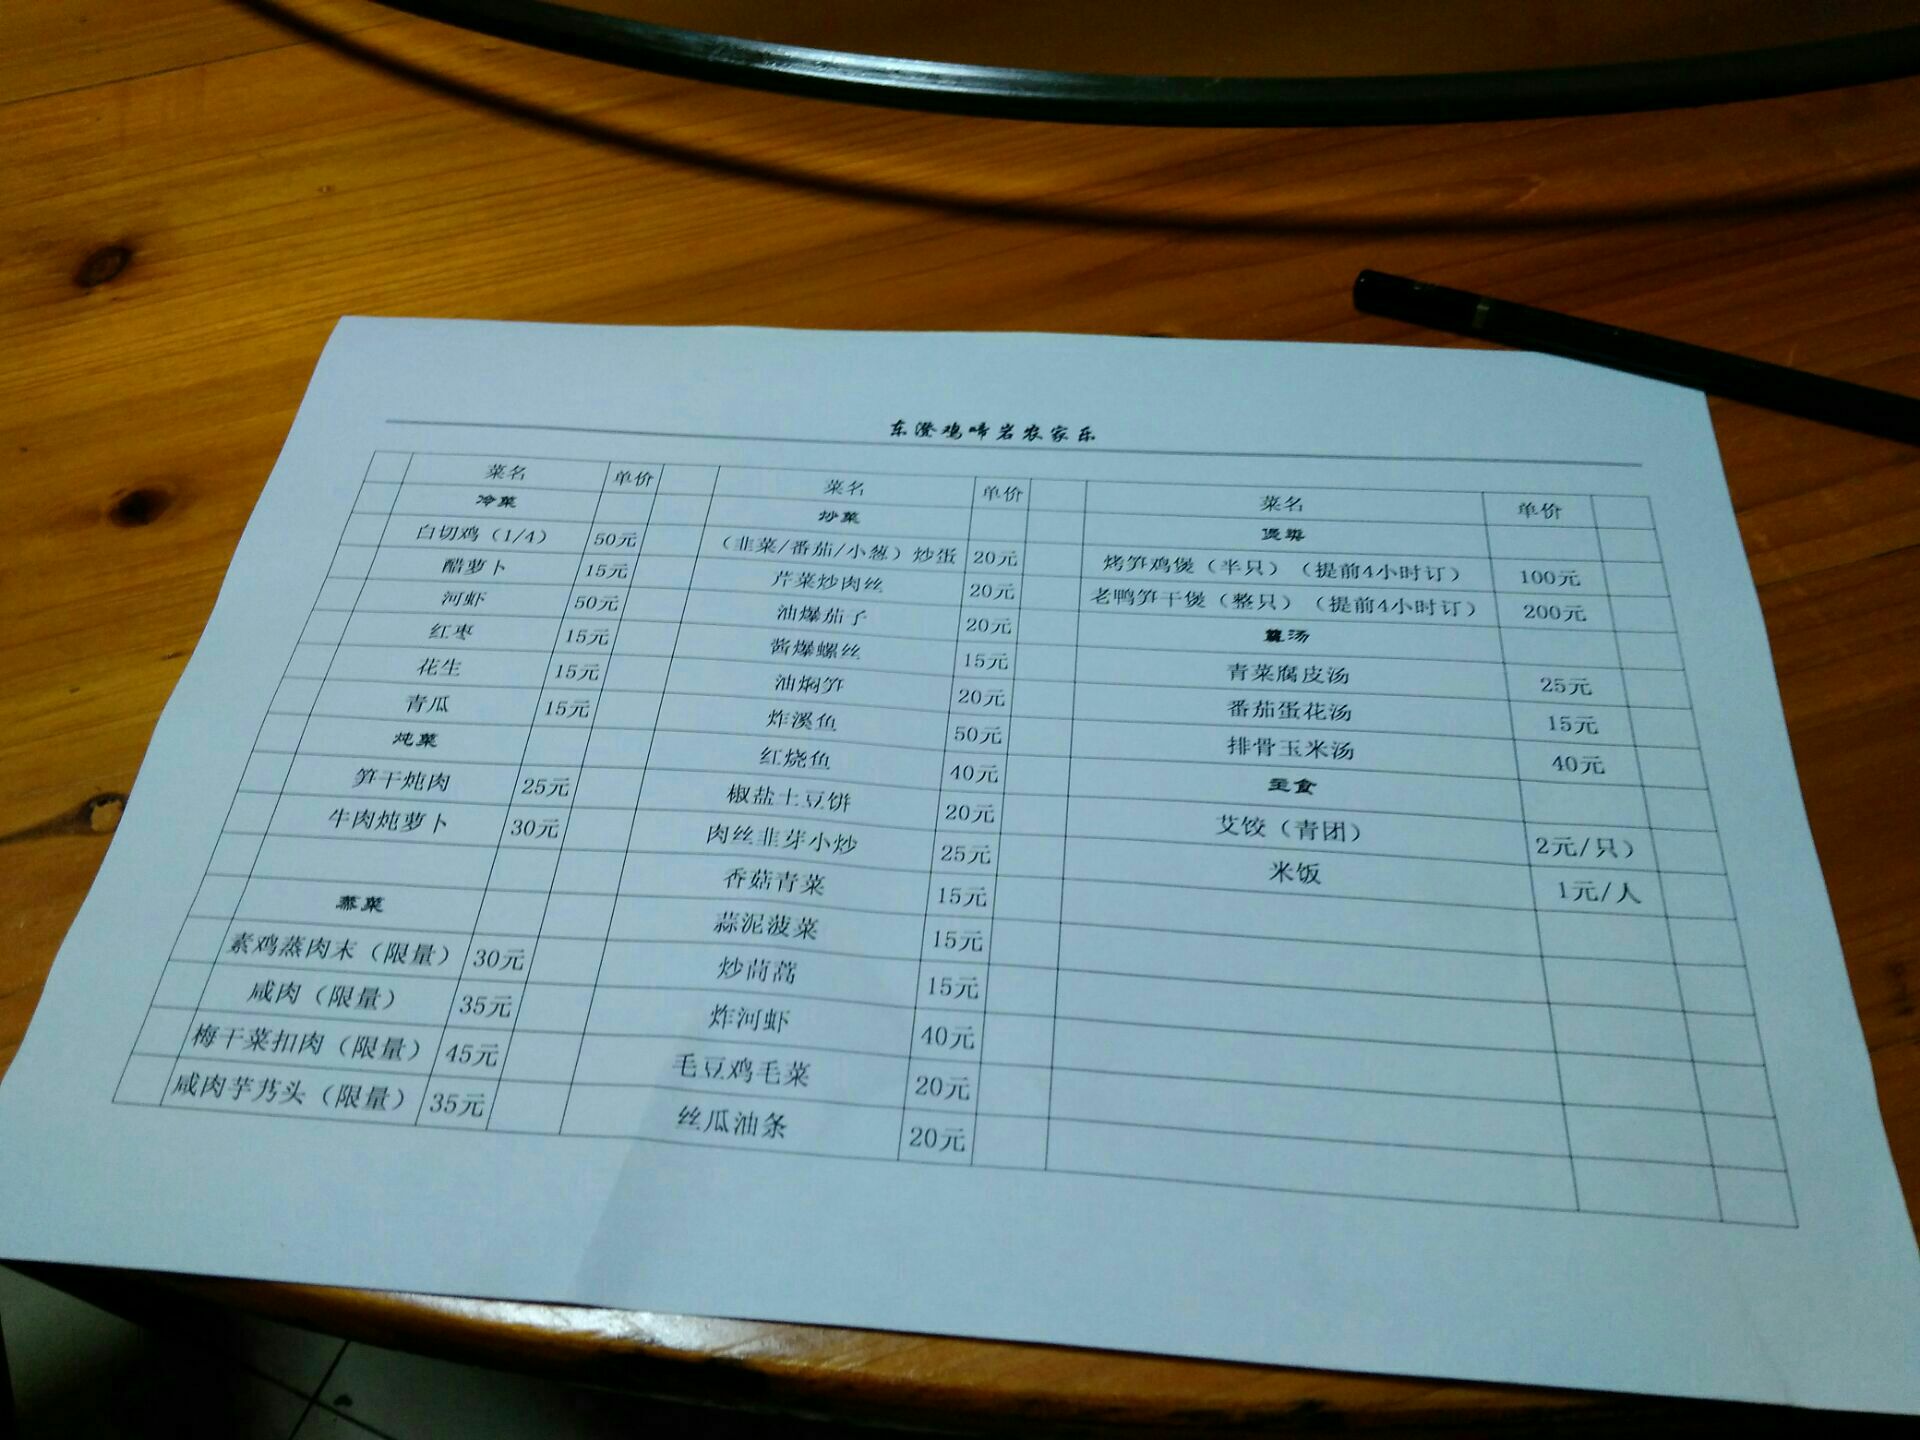 东澄鸡啼岩农家乐
菜名 单价 菜名 单价 菜名 单价
冷菜 炒菜 煲类
白切鸡（1/4） 50元 （韭菜/番茄/小葱）炒蛋 20元 烤笋鸡煲（半只）（提前4小时订） 100元
醋萝卜 15元 芹菜炒肉丝 20元 老鸭笋干煲（整只）（提前4小时订） 200元
河虾 50元 油爆茄子 20元 羹汤
红枣 15元 酱爆螺丝 15元 青菜腐皮汤 25元
花生 15元 油焖笋 20元 番茄蛋花汤 15元
青瓜 15元 炸溪鱼 50元 排骨玉米汤 40元
炖菜 红烧鱼 40元 主食
笋干炖肉 25元 椒盐土豆饼 20元 艾饺（青团） 2元/只）
牛肉炖萝卜 30元 肉丝韭芽小炒 25元 米饭 1元/人
香菇青菜 15元
蒸菜 蒜泥菠菜 15元
素鸡蒸肉末（限量） 30元 炒茼蒿 15元
咸肉（限量） 35元 炸河虾 40元
梅干菜扣肉（限量） 45元 毛豆鸡毛菜 20元
咸肉芋艿头（限量） 35元 丝瓜油条 20元